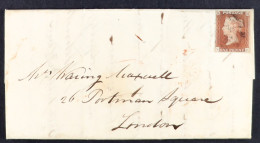 Mrs Waring Maxwell
26 Portman Square
London